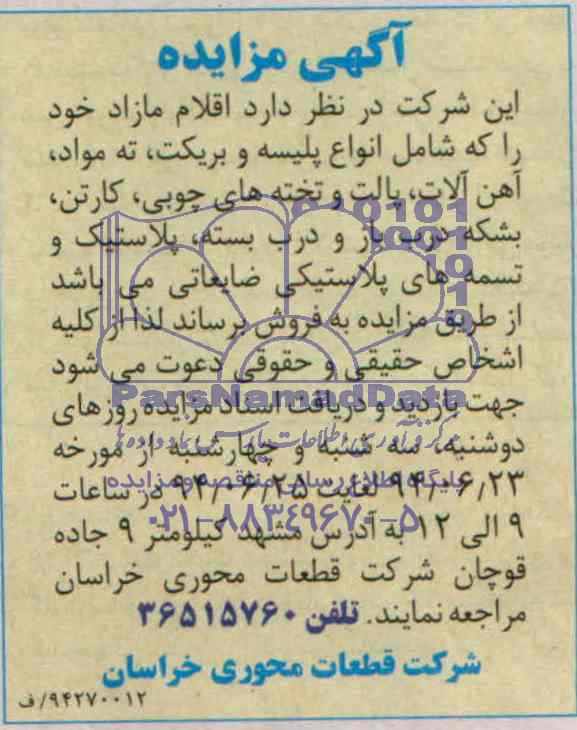 آگهی مزایده
این شرکت در نظر دارد اقلام مازاد خود
را که شامل انواع پلیسه و بریکت، ته مواد،
آهن آلات، پالت و تخته های چوبی، کارتن،
بشکه درب باز و درب بسته، پلاستیک و
تسمه های پلاستیکی ضایعاتی می باشد
از طریق مزایده به فروش برساند لذا از کلیه
اشخاص حقیقی و حقوقی دعوت می شود
جهت بازدید و دریافت اسناد مزایده روزهای
دوشنبه، سه شنبه و چهارشنبه از مورخه
۹۴/۰۶/۲۳ لغایت ۹۴/۰۶/۲۵ در ساعات
۹ الی ۱۲ به آدرس مشهد کیلومتر ۹ جاده
قوچان شرکت قطعات محوری خراسان
مراجعه نمایند. تلفن ۳۶۵۱۵۷۶۰
شرکت قطعات محوری خراسان
۹۴۲۷۰۰۱۲/ف
ParsNamadData
مرکز فرآوری اطلاعات پارس نماد داده ها
پایگاه اطلاع رسانی مناقصه و مزایده
۰۲۱-۸۸۳۴۹۶۷۰-۵